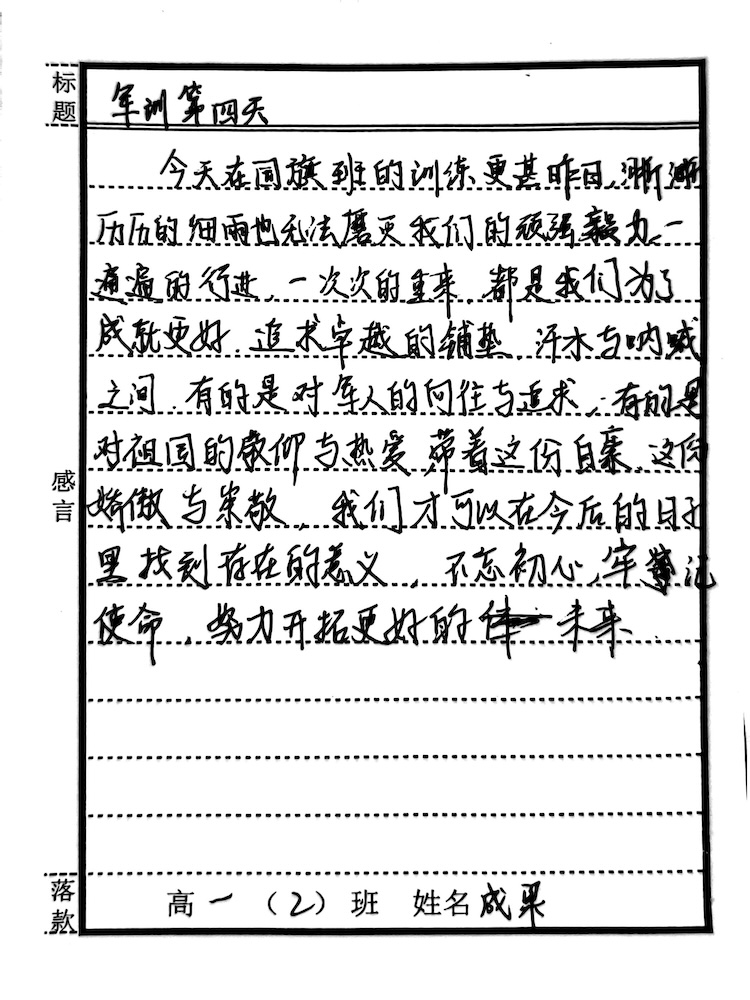 标题
军训第四天
今天在国旗班的训练更甚昨日,淅淅
历历的细雨也无法磨灭我们的顽强毅力、一
遍遍的行进,一次次的重来,都是我们为了
成就更好、追求卓越的铺垫,汗水与呐喊
之间,有的是对军人的向往与追求,有的是
对祖国的敬仰与热爱,带着这份自豪,这份
娇傲与崇敬,我们才可以在今后的日子
里找到存在的意义,不忘初心,牢记
使命,努力开拓更好的未来
感言
落款
高一(2)班 姓名成果